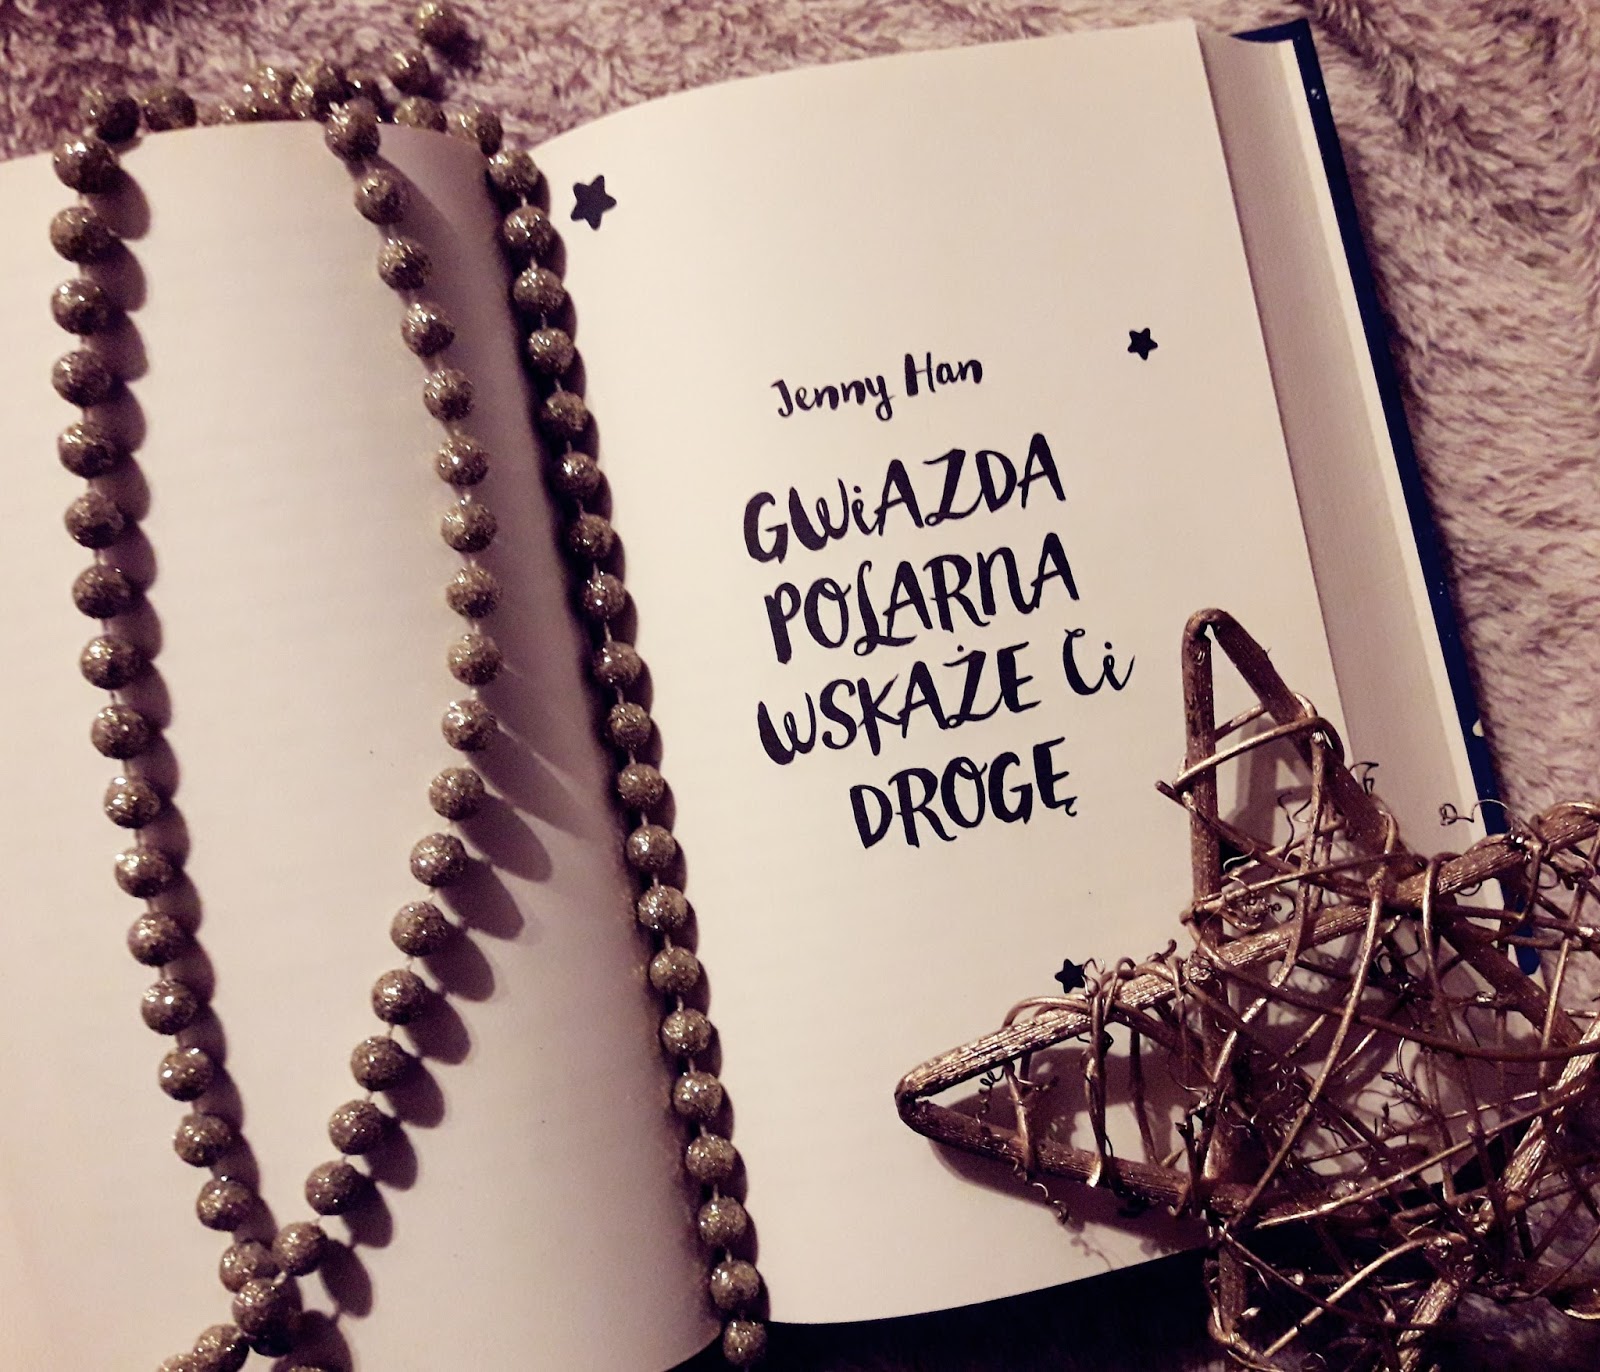 Jenny Han
GWiAZDA
POLARNA
WSKAŻE Ci
DROGĘ